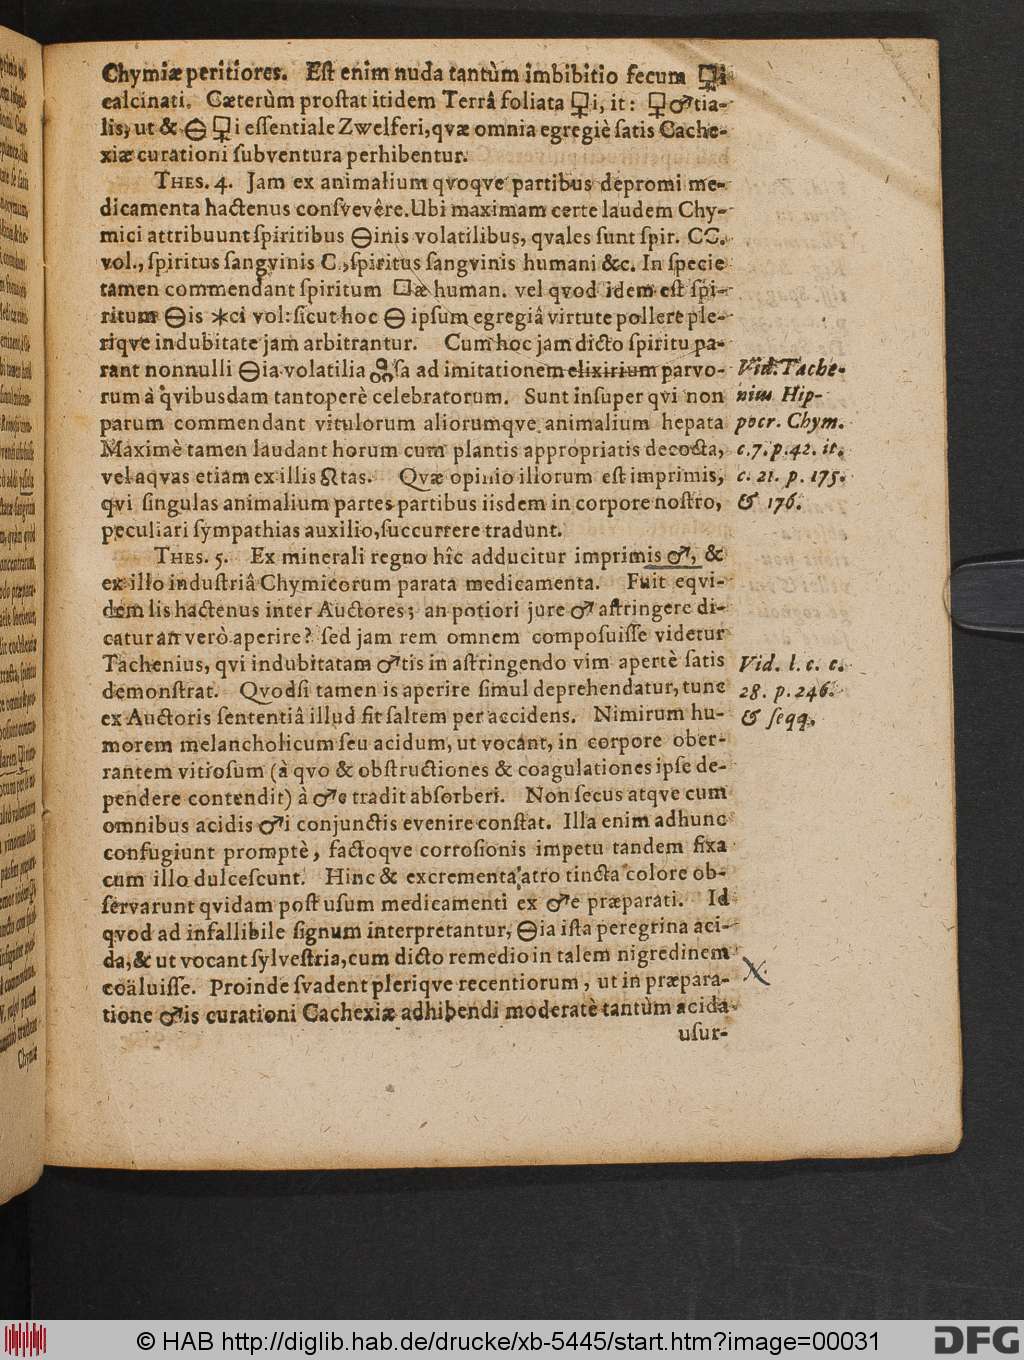 Chymiæ peritiores. Est enim nuda tantùm imbibitio fecum 🜿i
calcinati. Cæterùm prostat itidem Terrâ foliata 🜿i, it: 🜿♂tia-
lis, ut & 🜔 🜿i essentiale Zwelferi, qvæ omnia egregiè satis Cache-
xiæ curationi subventura perhibentur.
THES. 4. Jam ex animalium qvoqve partibus depromi me-
dicamenta hactenus consvevêre. Ubi maximam certe laudem Chy-
mici attribuunt spiritibus 🜔inis volatilibus, qvales sunt spir. CC.
vol., spiritus sangvinis C., spiritus sangvinis humani &c. In specie
tamen commendant spiritum □æ human. vel qvod idem est spi-
ritum 🜔is ✶ci vol: sicut hoc 🜔 ipsum egregiâ virtute pollere ple-
riqve indubitate jam arbitrantur. Cum hoc jam dicto spiritu pa-
rant nonnulli 🜔ia volatilia sa ad imitationem elixirium parvo-
rum à qvibusdam tantoperè celebratorum. Sunt insuper qvi non
parum commendant vitulorum aliorumqve animalium hepata
Maximè tamen laudant horum cum plantis appropriatis decocta,
vel aqvas etiam ex illis ☊tas. Qvæ opinio illorum est imprimis,
qvi singulas animalium partes partibus iisdem in corpore nostro,
peculiari sympathias auxilio, succurrere tradunt.
THES. 5. Ex minerali regno hîc adducitur imprimis ♂, &
ex illo industriâ Chymicorum parata medicamenta. Fuit eqvi-
dem lis hactenus inter Auctores; an potiori jure ♂ astringere di-
catur an verò aperire? sed jam rem omnem composuisse videtur
Tachenius, qvi indubitatam ♂tis in astringendo vim apertè satis
demonstrat. Qvodsi tamen is aperire simul deprehendatur, tunc
ex Auctoris sententiâ illud fit saltem per accidens. Nimirum hu-
morem melancholicum seu acidum, ut vocant, in corpore ober-
rantem vitiosum (à qvo & obstructiones & coagulationes ipse de-
pendere contendit) à ♂e tradit absorberi. Non secus atqve cum
omnibus acidis ♂i conjunctis evenire constat. Illa enim adhunc
confugiunt promptè, factoqve corrosionis impetu tandem fixa
cum illo dulcescunt. Hinc & excrementa atro tincta colore ob-
servarunt qvidam post usum medicamenti ex ♂e præparati. Id
qvod ad infallibile signum interpretantur, 🜔ia ista peregrina aci-
da, & ut vocant sylvestria, cum dicto remedio in talem nigredinem
coäluisse. Proinde svadent pleriqve recentiorum, ut in præpara-
tione ♂is curationi Cachexiæ adhibendi moderatè tantùm acida
usur-
Vid. Tache-
nium Hip-
pocr. Chym.
c. 7. p. 42. it.
c. 21. p. 175.
& 176.
Vid. l. c. c.
28. p. 246.
& seqq.
X.
Chymiæ
© HAB http://diglib.hab.de/drucke/xb-5445/start.htm?image=00031
DFG